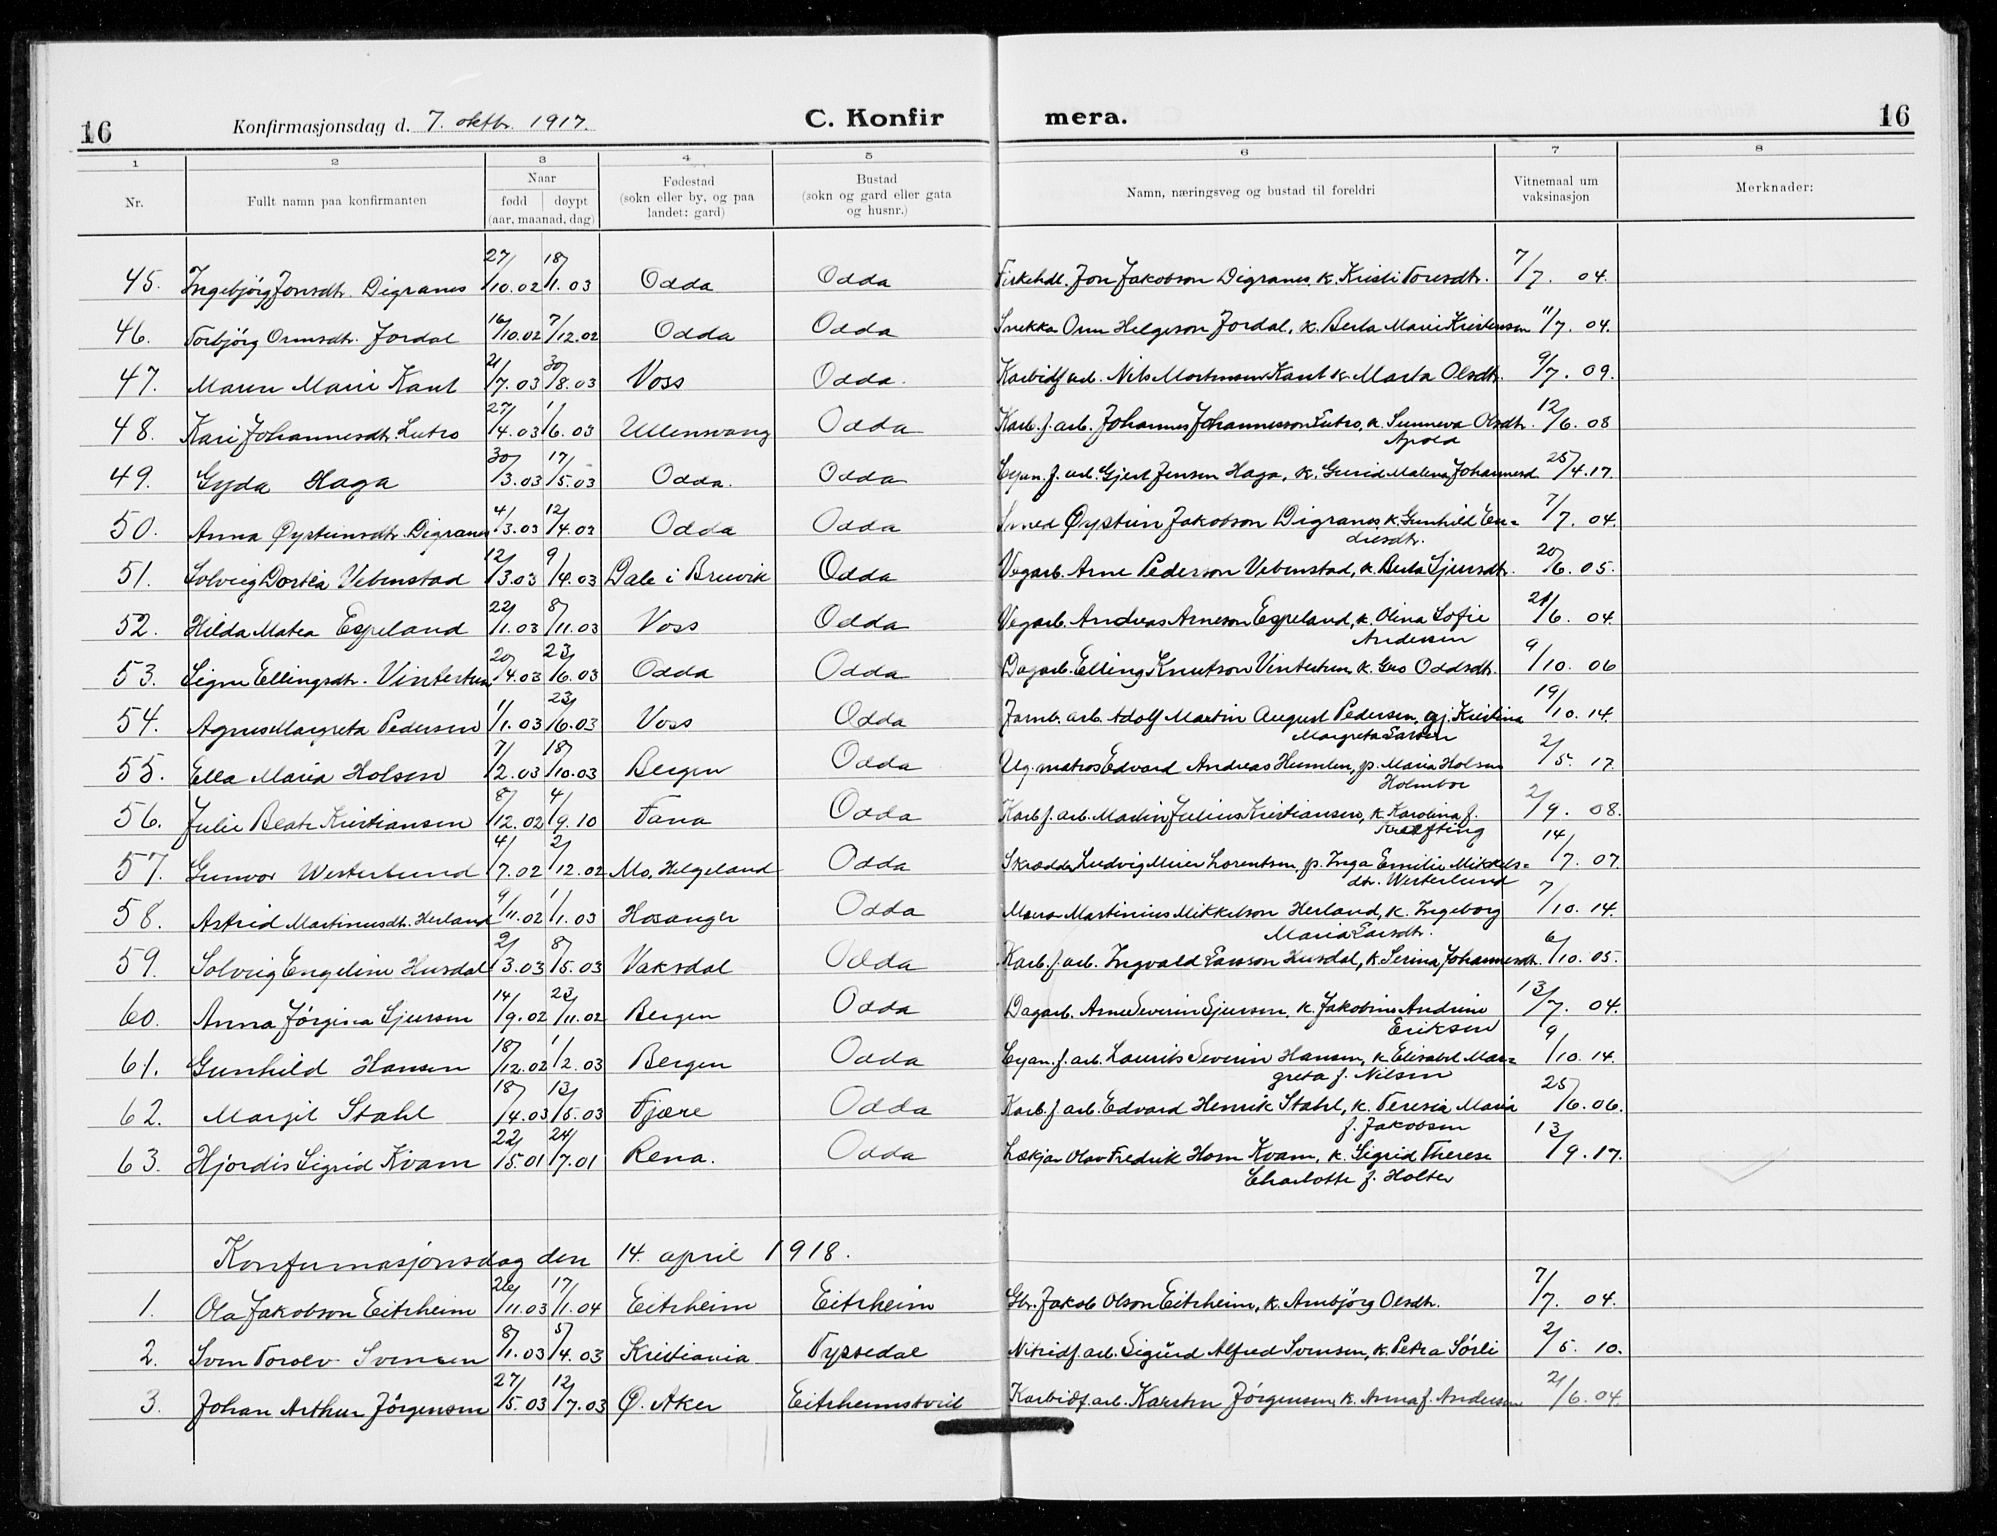 16 Konfirmasjonsdag d. 7. oktbr. 1917. C. Konfir mera. 16
1 2 3 4 5 6 7 8
Nr. Fullt namn paa konfirmanten Naar fødd døypt (aar, maanad, dag) Fødestad (sokn eller by, og paa landet: gard) Bustad (sokn og gard eller gata og husnr.) Namn, næringsveg og bustad til foreldri Vitnemaal um vaksinasjon Merknader:
45. Ingebjörg Jonsdtr. Digranes 27/10.02 18/1.03 Odda Odda Fiskehdl. Jon Jakobson Digranes, k. Kristi Toresdtr. 7/7. 04.
46. Torbjörg Ormsdtr. Jordal 16/10.02 7/12.02 Odda Odda Snekkar Orm Helgeson Jordal, k. Berta Marie Kristensen 11/7. 04.
47. Maren Marie Kant 21/7.03 30/8.03 Voss Odda. Karbidf. arb. Nils Mortensen Kant k. Marta Olsdtr. 9/7. 09.
48. Kari Johannesdtr. Lutro 27/4.03 1/6.03 Ullensvang Odda Karb. f. arb. Johannes Johannesson Lutro, k. Sunneva Olsdtr. 12/6. 08
Apold
49. Gyda Haga 30/3.03 17/5.03 Odda. Odda Cyan. f. arb. Gjert Jensen Haga, k. Gurid Malena Johannesd. 25/4.17.
50. Anna Øysteinsdtr. Digranes 4/3.03 12/4.03 Odda Odda Smed Øystein Jakobson Digranes k. Gunhild En= 7/7. 04.
dresdtr.
51. Solveig Dortea Vebenstad 12/3.03 9/4.03 Dale i Bruvik Odda Vegarb. Arne Pederson Vebenstad, k. Berta Sjursdtr. 20/6. 05.
52. Hilda Matea Espeland 22/1.03 8/11.03 Voss Odda Vegarb. Andreas Arneson Espeland, k. Olina Sofie 21/6. 04.
Andersen
53. Signe Ellingsdtr. Vintertun 20/4.03 23/6.03 Odda Odda Dagarb. Elling Knutson Vintertun, k. Gro Oddsdtr. 9/10. 06
54. Agnes Margreta Pedersen 1/1.03 23/6.03 Voss Odda Jarnb. arb. Adolf Martin August Pedersen, gj. Kristina 19/10. 14.
Margreta Larsen
55. Ella Maria Holsen 7/2.03 18/10.03 Bergen Odda Ug. matros Edvard Andreas Humlen, p. Maria Holsen 2/5. 17.
Holmboe
56. Julie Beate Kristiansen 8/12.02 4/9.10 Fana Odda Karb. f. arb. Martin Julius Kristiansen, k. Karolina f. 2/9. 08.
Krafting
57. Gunvor Westerlund 4/7.02 2/12.02 Mo, Helgeland Odda Skrædder Ludvig Meier Lorentsen, p. Inga Emilie Mikkels= 14/7. 07.
dtr. Westerlund
58. Astrid Martinusdtr. Herland 9/11.02 1/1.03 Hosanger Odda Martinius Mikkelson Herland, k. Ingeborg 7/10. 14.
Maria Larsdtr.
59. Solveig Engeline Husdal 2/3.03 8/5.03 Vaksdal Odda Karb. f. arb. Ingvald Larsson Husdal, k. Serina Johannesdtr. 6/10. 05.
60. Anna Jörgina Sjursen 14/9.02 23/11.02 Bergen Odda Dagarb. Arne Severin Sjursen, k. Jakobine Andrine 13/7. 04.
Eriksen
61. Gunhild Hansen 18/12.02 1/2.03 Bergen Odda Cyan. f. arb. Laurits Severin Hansen, k. Elisabet Mar= 9/10. 14.
greta f. Nilsen
62. Margit Stahl 18/4.03 13/5.03 Fjære Odda Karb. f. arb. Edvard Henrik Stahl, k. Teresia Maria 25/6. 06.
f. Jakobsen
63. Hjördis Sigrid Kvam 22/5.01 24/7.01 Rena. Odda Lækjar Olav Fredrik Horn Kvam, k. Sigrid Therese 13/9. 17.
Charlotte f. Holter
Konfirmasjonsdag den 14. april 1918.
1. Ola Jakobson Eitrheim 26/11.03 17/1.04 Eitrheim Eitrheim Gbr. Jakob Olson Eitrheim, k. Ambjörg Olsdtr. 7/7. 04.
2. Sven Torolv Svensen 8/1.03 5/4.03 Kristiania Tyssedal Nitridf. arb. Sigurd Alfred Svensen, k. Petra Sörli 2/5. 10.
3. Johan Arthur Jörgensen 27/5.03 12/7.03 Ø. Aker Eitrheimstveit Karbidf. arb. Karsten Jörgensen, k. Anna f. Andersen 21/6. 04.